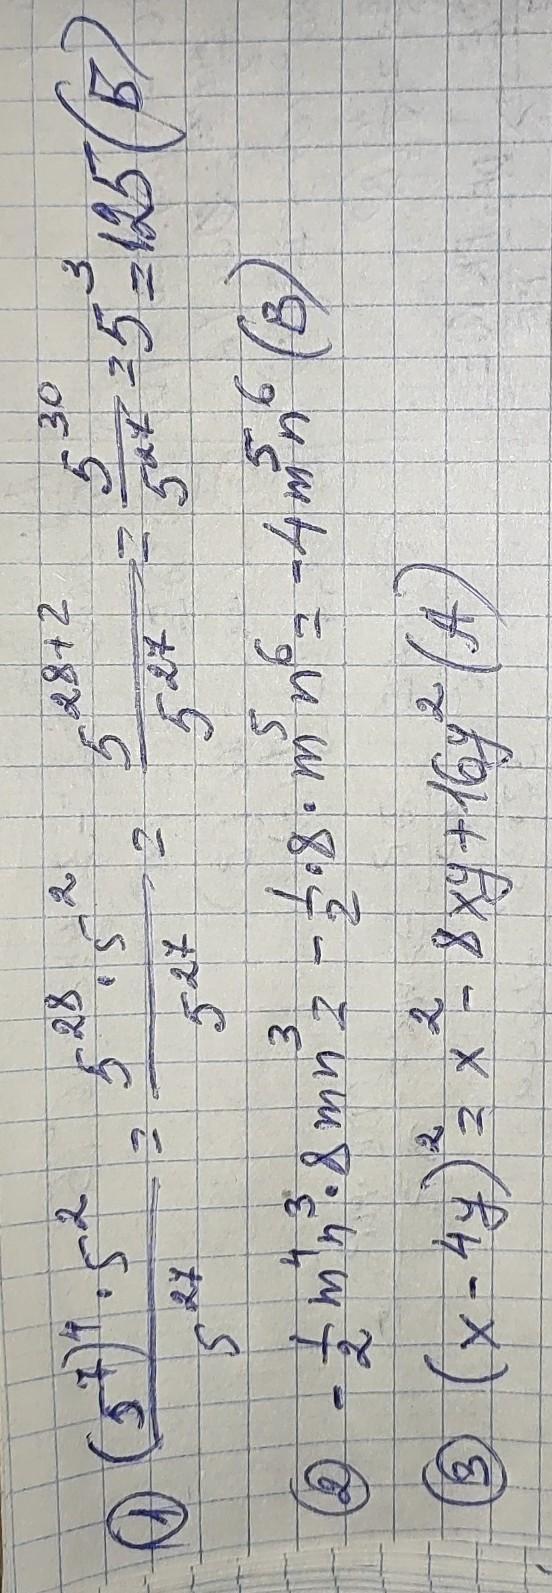 ① (5⁷)⁴·5² / 5²⁷ = 5²⁸·5² / 5²⁷ = 5²⁸⁺² / 5²⁷ = 5³⁰ / 5²⁷ = 5³ = 125 (Б)
② -1/2 m⁴n³·8mn³ = -1/2·8·m⁵n⁶ = -4m⁵n⁶ (В)
③ (x-4y)² = x² - 8xy + 16y² (А)